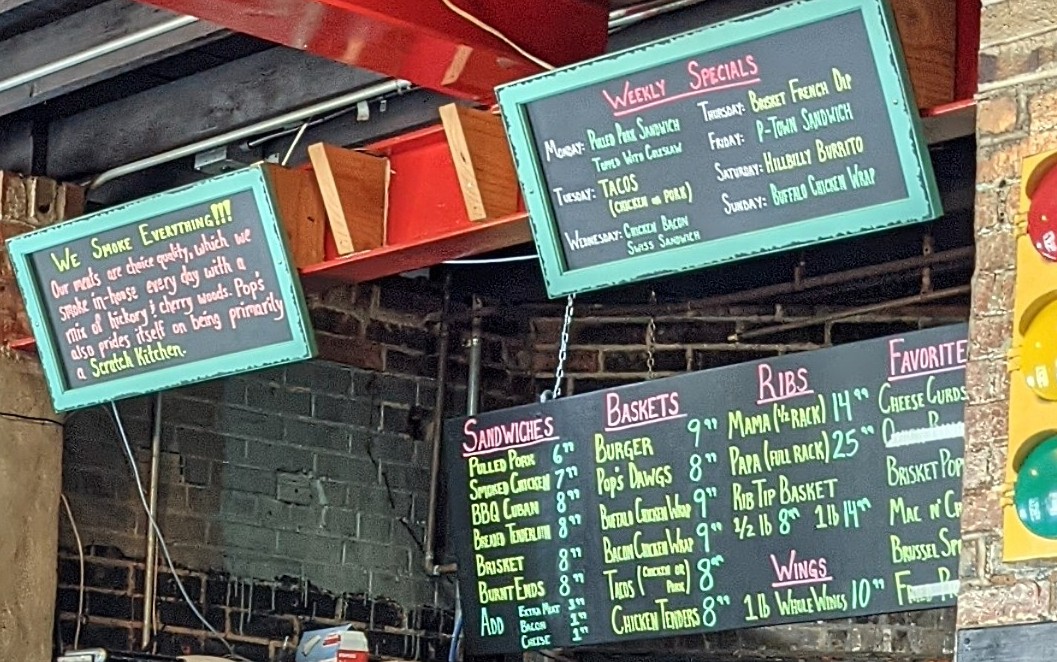 We Smoke Everything!!!
Our meats are choice quality, which we
smoke in-house every day with a
mix of hickory & cherry woods. Pop's
also prides itself on being primarily
a Scratch Kitchen.
Weekly Specials
Monday: Pulled Pork Sandwich
Topped With Coleslaw
Tuesday: Tacos
(Chicken or Pork)
Wednesday: Chicken Bacon
Swiss Sandwich
Thursday: Brisket French Dip
Friday: P-Town Sandwich
Saturday: Hillbilly Burrito
Sunday: Buffalo Chicken Wrap
Sandwiches
Pulled Pork 6.99
Smoked Chicken 7.99
BBQ Cuban 8.99
Breaded Tenderloin 8.99
Brisket 8.99
Burnt Ends 8.99
Add Extra Meat 3.99
Bacon 1.99
Cheese 1.99
Baskets
Burger 9.99
Pop's Dawgs 8.99
Buffalo Chicken Wrap 9.99
Bacon Chicken Wrap 9.99
Tacos (Chicken or Pork) 8.99
Chicken Tenders 8.99
Ribs
Mama (1/2 Rack) 14.99
Papa (Full Rack) 25.99
Rib Tip Basket
1/2 lb 8.99 1 lb 14.99
Wings
1 lb Whole Wings 10.99
Favorite
Cheese Curds
Brisket Pop
Mac n' Ch
Brussel Sp